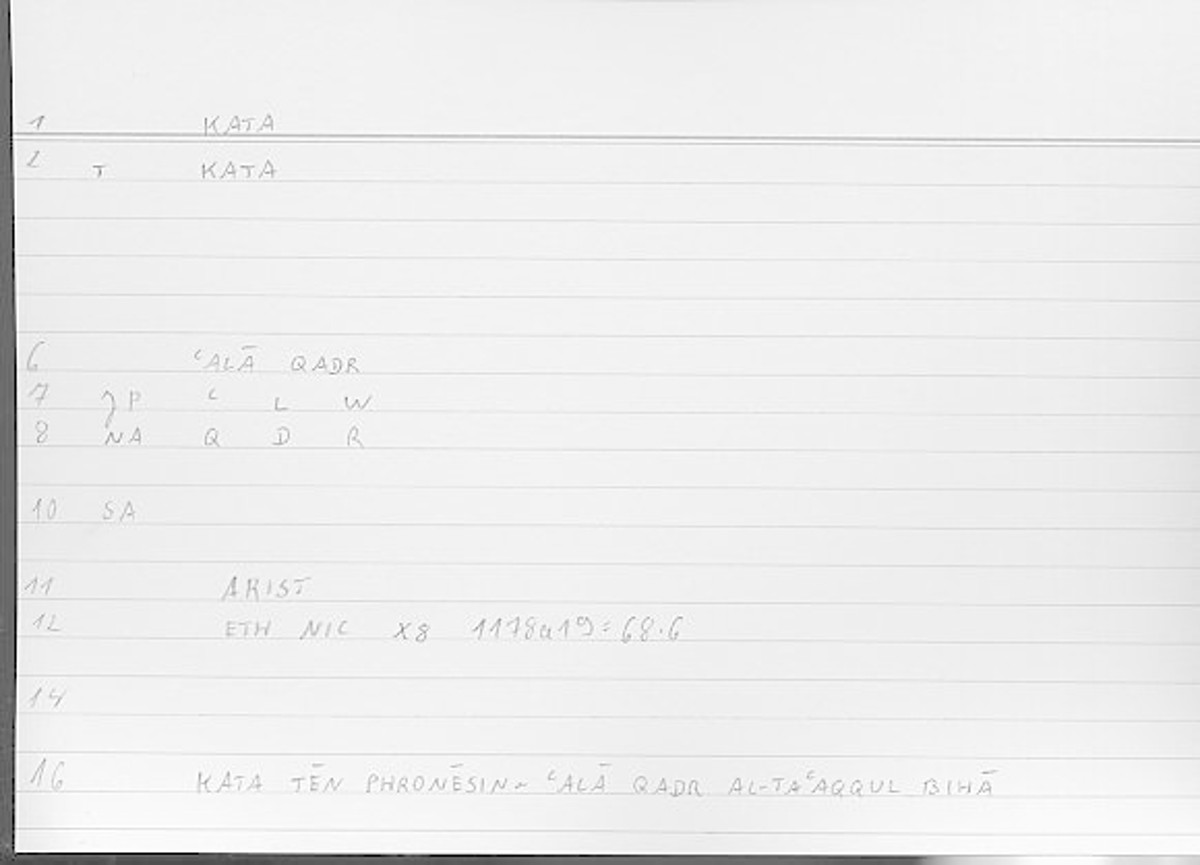 1 KATA
2 T KATA
6 ʿALĀ QADR
7 ʿ L W
8 NA Q D R
10 SA
11 ARIST
12 ETH NIC X8 1178a19=68.6
14
16 KATA TĒN PHRONĒSIN ~ ʿALĀ QADR AL-TAʿAQQUL BIHĀ